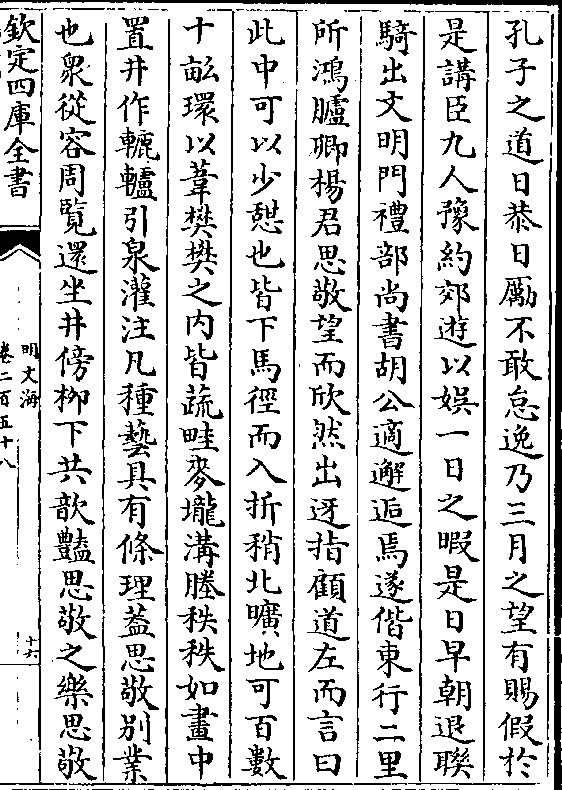 孔子之道日恭日勵不敢怠逸乃三月之望有賜假於
是講臣九人豫約郊遊以娯一日之暇是日早朝退聯
騎出文明門禮部尚書胡公適邂逅焉遂偕東行二里
所鴻臚卿楊君思敬望而欣然出迓指顧道左而言曰
此中可以少憇也皆下馬徑而入折稍北曠地可百數
十畝環以葦樊樊之内皆蔬畦麥壠溝塍秩秩如畫中
置井作轆轤引泉灌注凡種藝具有條理葢思敬别業
也衆從容周覽還坐井傍柳下共歆豔思敬之樂思敬
欽定四庫全書
明文海
卷二百五十八
十六